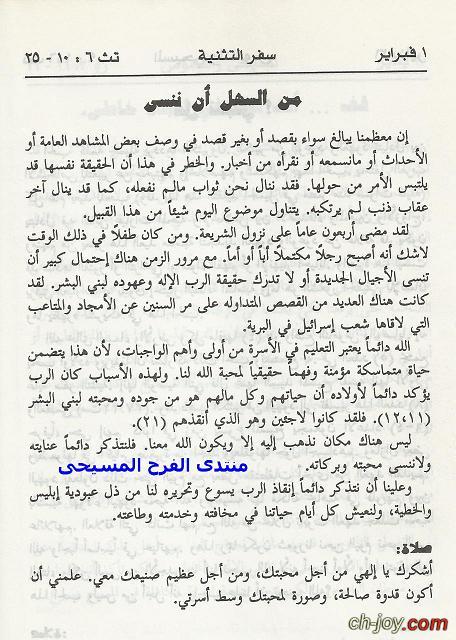 ١ فبراير سفر التثنية تث ٦ : ١٠ - ٢٥
من السهل أن ننسى
إن معظمنا يبالغ سواء بقصد أو بغير قصد في وصف بعض المشاهد العامة أو
الأحداث أو مانسمعه أو نقرأه من أخبار. والخطر في هذا أن الحقيقة نفسها قد
يلتبس الأمر من حولها. فقد ننال نحن ثواب مالم نفعله، كما قد ينال آخر
عقاب ذنب لم يرتكبه. يتناول موضوع اليوم شيئاً من هذا القبيل.
لقد مضى أربعون عاماً على نزول الشريعة. ومن كان طفلاً في ذلك الوقت
لاشك أنه أصبح رجلاً مكتملاً أباً أو أماً. مع مرور الزمن هناك إحتمال كبير أن
تنسى الأجيال الجديدة أو لا تدرك حقيقة الرب الإله وعهوده لبني البشر. لقد
كانت هناك العديد من القصص المتداوله على مر السنين عن الأمجاد والمتاعب
التي لاقاها شعب إسرائيل في البرية.
الله دائماً يعتبر التعليم في الأسرة من أولى وأهم الواجبات، لأن هذا يتضمن
حياة متماسكة مؤمنة وفهماً حقيقياً لمحبة الله لنا. ولهذه الأسباب كان الرب
يؤكد دائماً لأولاده أن حياتهم وكل مالهم هو من جوده ومحبته لبني البشر
(١٢،١١). فلقد كانوا لاجئين وهو الذي أنقذهم (٢١).
ليس هناك مكان نذهب إليه إلا ويكون الله معنا. فلنتذكر دائماً عنايته
ولاننسى محبته وبركاته. منتدى الفرح المسيحى
وعلينا أن نتذكر دائماً إنقاذ الرب يسوع وتحريره لنا من ذل عبودية إبليس
والخطية، ولنعيش كل أيام حياتنا في مخافته وخدمته وطاعته.
صلاة:
أشكرك يا إلهي من أجل محبتك، ومن أجل عظيم صنيعك معي. علمني أن
أكون قدوة صالحة، وصورة لمحبتك وسط أسرتي.
ch-joy.com